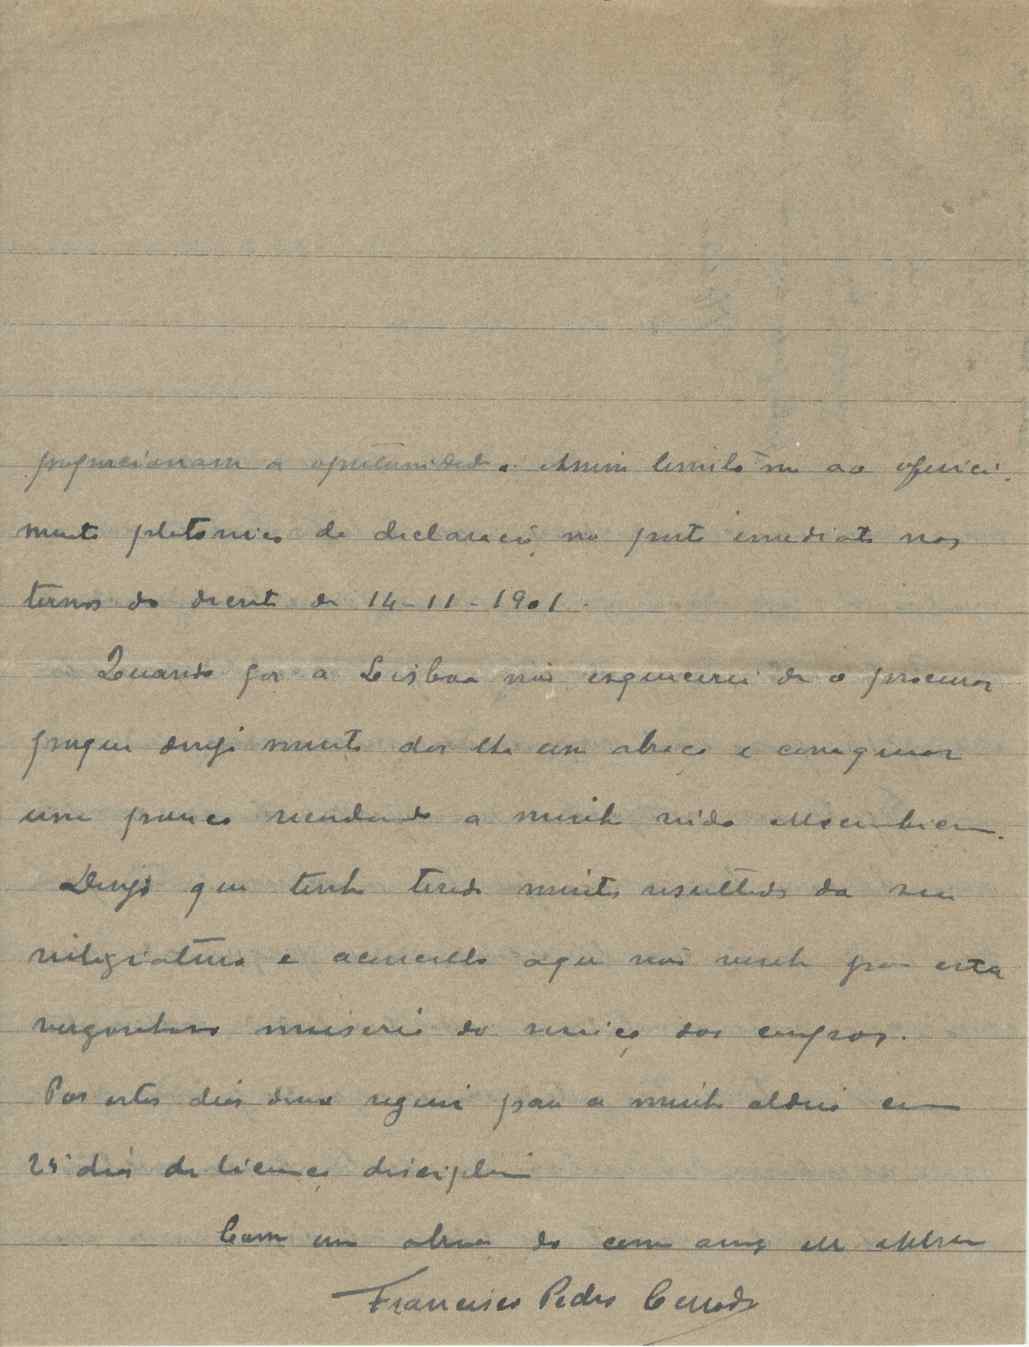 proporcionaram a oportunidade. Assim limito-me ao ofereci-
mento platonico da declaração no posto immediato nos
termos do decreto de 14-11-1901.
Quando for a Lisboa não esquecerei de o procurar
porque desejo muito dar-lhe um abraço e conversar
um pouco recordando a minha vida
Desejo que tenha tirado muito resultado da sua
vilegiatura e aconselho a que não venha para esta
vergonhosa miseria do serviço dos corpos.
Por estes dias devo seguir para a minha aldeia em
25 dias de licença disciplinar
Com um abraço do
Francisco Pedro Curado